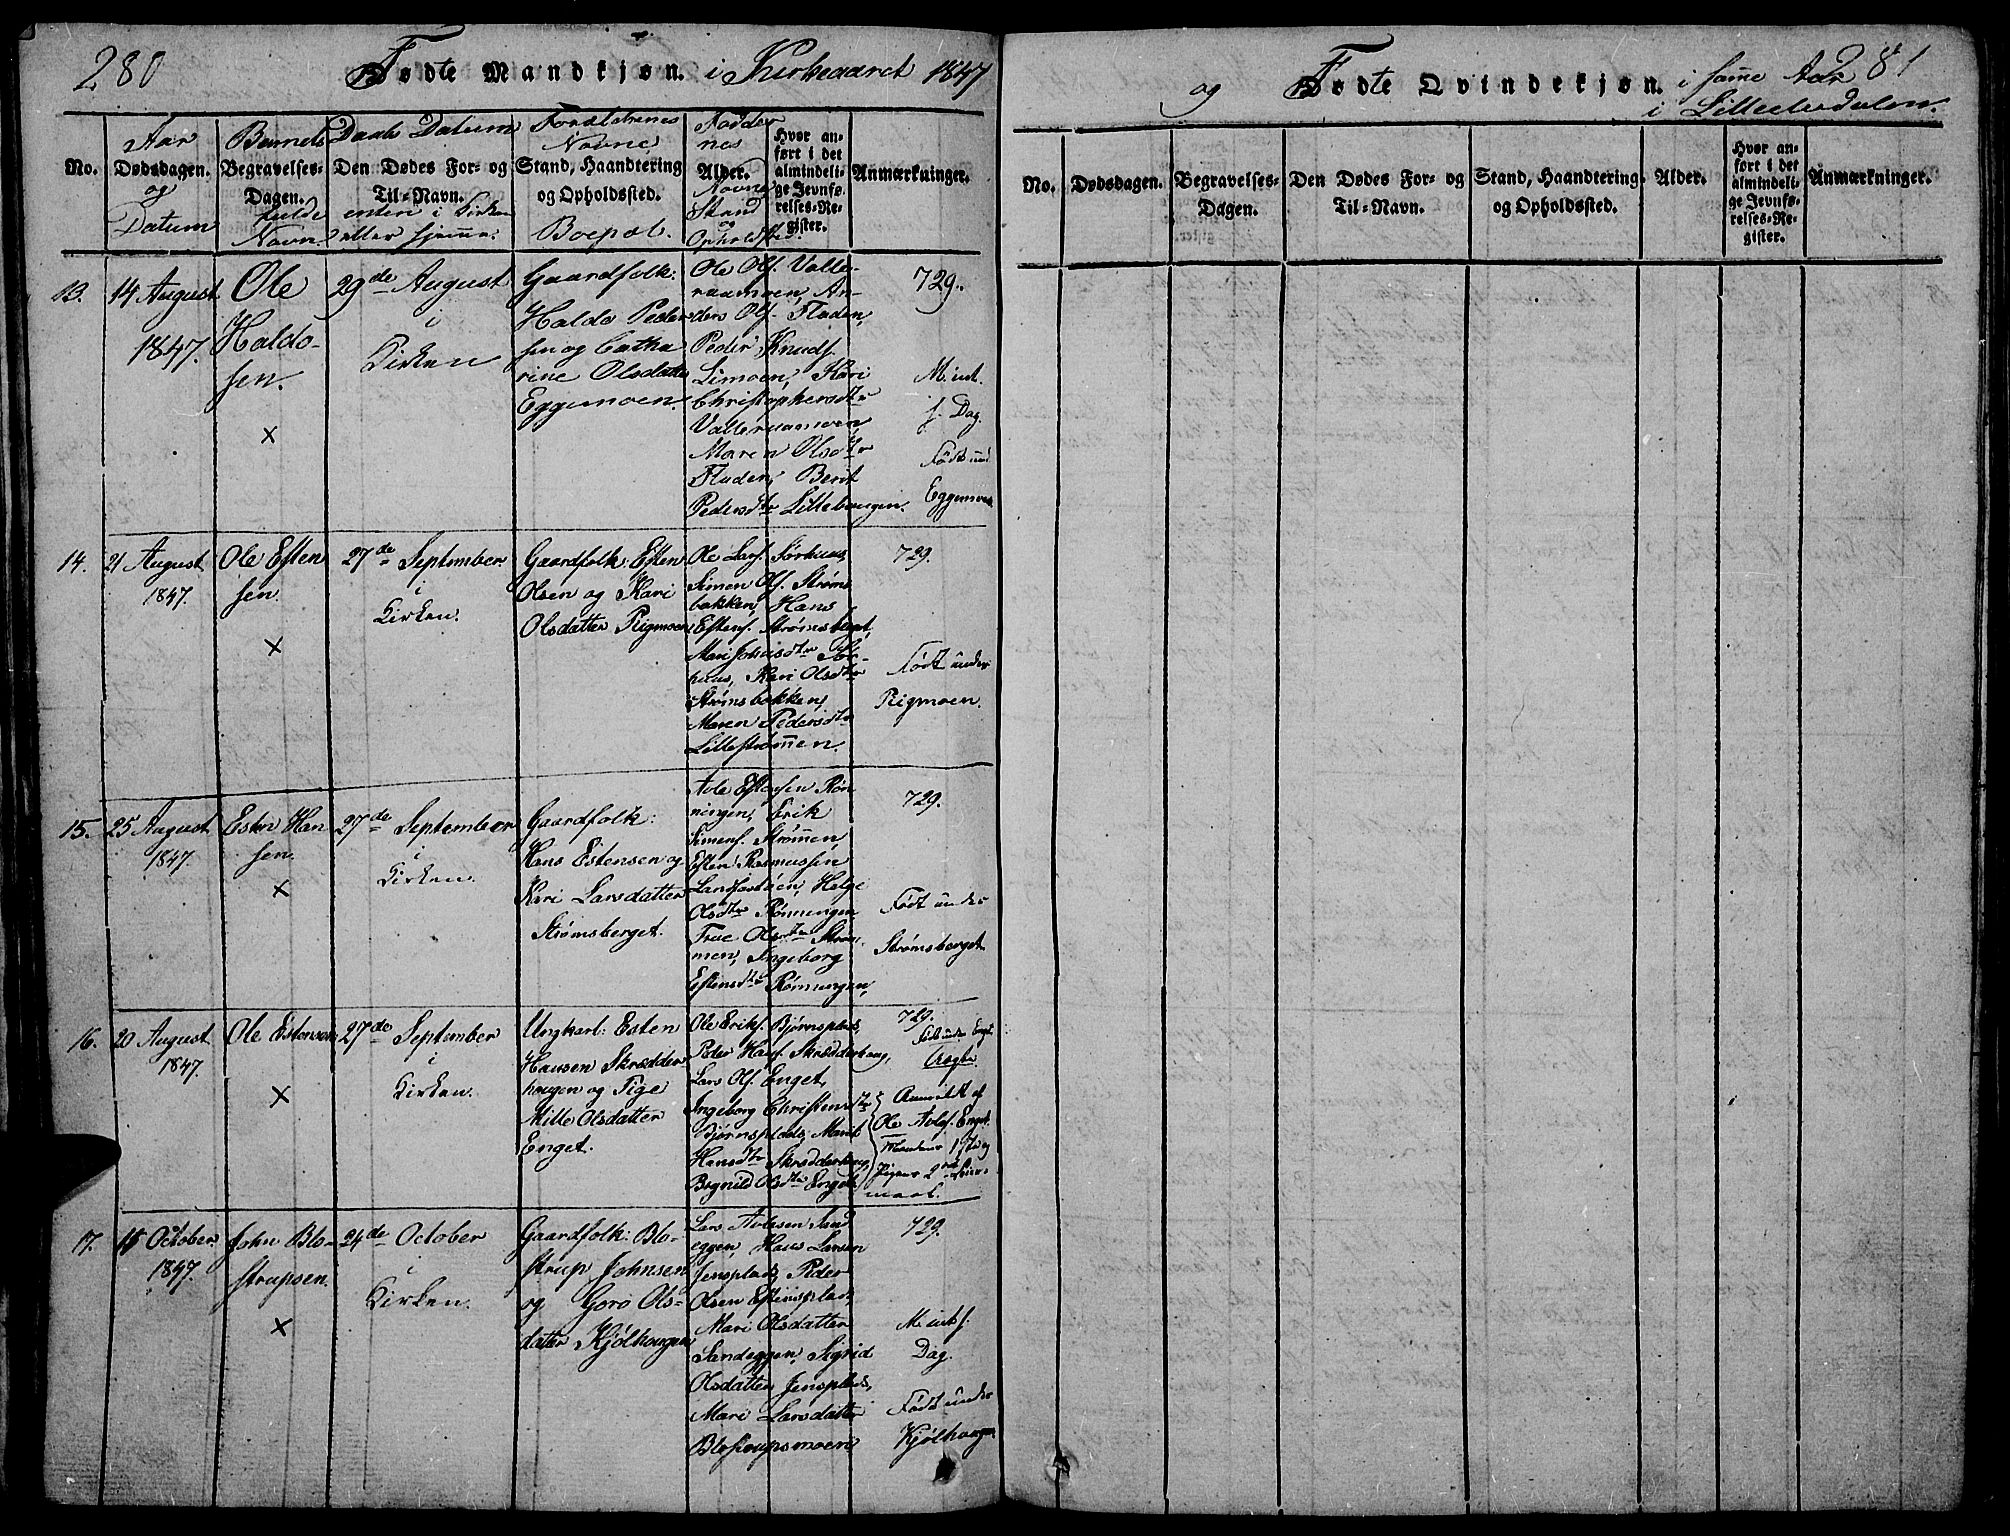 280
Fødte Mandkjøn. i Kirkeaaret 1847
No.
Aar
Dødsdagen.
og
Datum
Barnets
Begravelses-
Dagen.
fulde
Navn.
Daabs Datum
Den Dødes For- og
Til-Navn.
enten i Kirken
eller hjemme.
Forældrenes
Navne,
Stand, Haandtering
og Opholdssted.
Boepæl.
Fadder
nes
Alder.
Navne
Stand
og
Opholdsted.
Hvor an-
ført i det
almindeli-
ge Jevnfø-
relses-Re-
gister.
Anmærkninger.
13.
14 August
1847.
Ole
Haldo-
sen.
×
29de August
i
Kirken
Gaardfolk:
Haldo Peder
sen og Catha
rine Olsdatter
Eggemoen.
Ole Ols. Valle-
raamoen, An-
ders Ols. Fladen,
Peder Knuds.
Limoen, Kari
Christophersdtr
Valleraamoen,
Maren Olsdtr
Fladen, Berit
Pedersdtr Lillebangen.
729.
M. int.
s. Dag.
Født und.
Eggemoen
14.
21 August
1847.
Ole Esten
sen.
×
27de September
i
Kirken.
Gaardfolk: Esten
Olsen og Kari
Olsdatter Rigmoen
Ole Lars. Sørhuus,
Simen Ols. Strøms
bakken, Hans
Estens. Strømsberget,
Mari Johnsdtr Sør-
huus, Kari Olsdtr
Strømsbakken,
Maren Pedersdtr
Lillestrømmen.
729.
Født under
Rigmoen.
15.
25 August
1847.
Esten Han
sen.
×
27de September
i
Kirken.
Gaardfolk:
Hans Estensen og
Kari Larsdatter
Strømsberget.
Avle Estensen Røn
ningen, Erik
Simens. Strømmen,
Esten Rasmussen
Landsørstøen, Helge
Olsdtr Rønningen
True Olsdtr Strøm-
men, Ingeborg
Estensdtr Rønningen,
729.
Født under
Strømsberget.
16.
20 August
1847.
Ole Estensen
×
27de September
i
Kirken.
Ungkarl: Esten
Hansen Skrædder
haugen og Pige
Mille Olsdatter
Enget.
Ole Eriks. Bjørnsplads,
Peder Hans. Skrædderhaug,
Lars Ols. Enget,
Ingeborg Christensdtr
Bjørnsplads, Marit
Hansdtr Skrædderhaug,
Bognild Olsdtr Enget.
729.
Født under Enget
Uægte.
Anmeldt af
Ole Avles. Enget.
Mandens 1ste og
Pigens 2det Leier-
maal.
17.
15 October
1847.
John Blo-
strupsen.
×
24de October
i
Kirken.
Gaardfolk: Blo-
strup Johnsen
og Goro Ols-
datter Kjølhaugen
Lars Avlesen Sand
eggen, Hans Larsen
Jensplads, Peder
Olsen Estensplads,
Mari Olsdatter
Sandeggen, Sigrid
Olsdatter Jensplads,
Mari Larsdatter
Blostrupsmoen
729.
M. int. s.
Dag.
Født under
Kjølhaugen
og Fødte Qvindekjøn. i samme Aar
281
i Lilleelvedalen.
No.
Dødsdagen.
Begravelses-
Dagen.
Den Dødes For- og
Til-Navn.
Stand, Haandtering
og Opholdssted.
Alder.
Hvor an-
ført i det
almindeli-
ge Jevnfø-
relses-Re-
gister.
Anmærkninger.